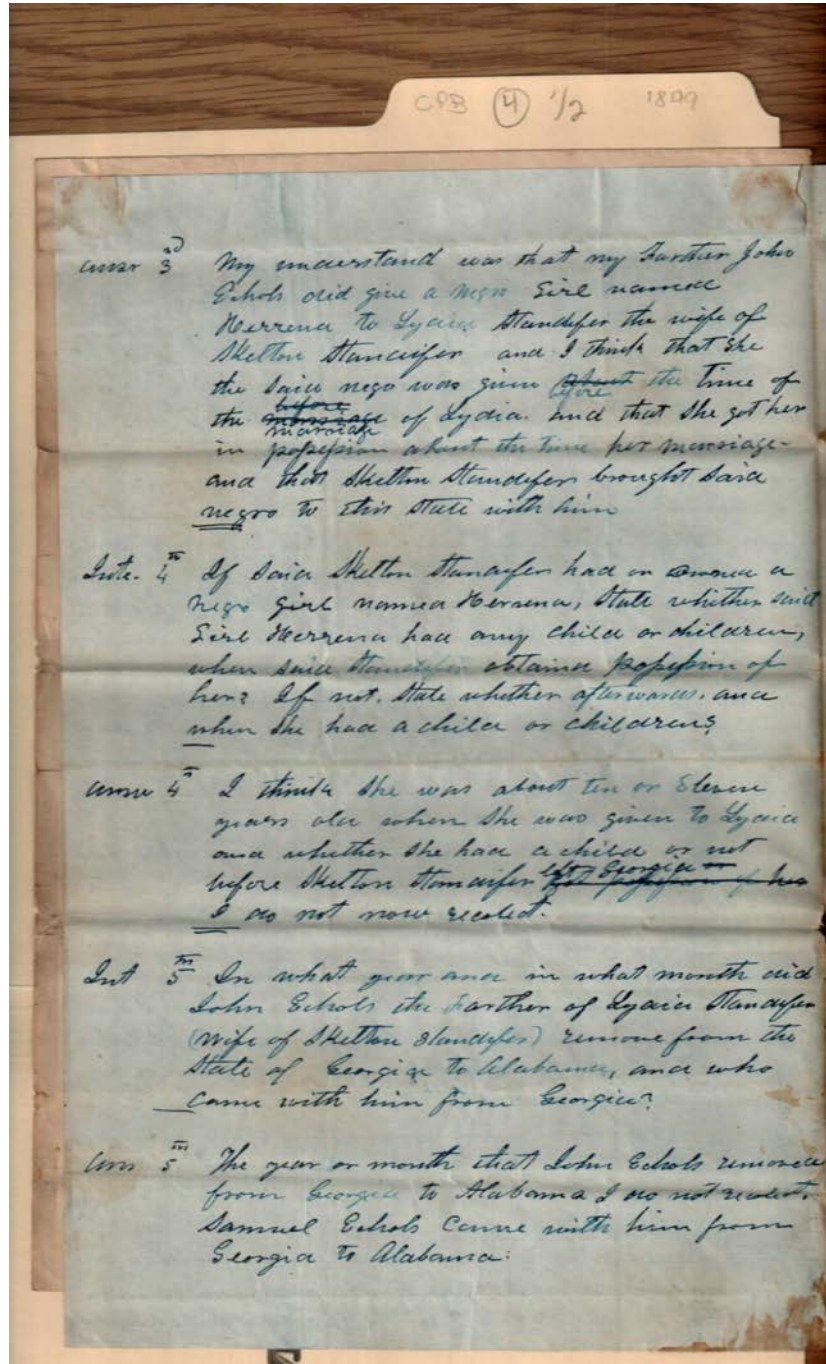 CPB 4 1/2 1849
answr 3d My understand was that my Farther John
Echols did give a Negro Girl named
Herrena to Lydia Standefer the wife of
Skelton Standifer and I think that she
the said nego was given about before the time of
the before marriage marriage of Lydia. and that she got her
in possession about the time her marriage -
and that Skelton Standefer brought said
negro to this State with him
Inte. 4th If said Skelton Standifer had or owned a
nego girl named Herrena, State whether said
Girl Herrena had any child or children,
when said Standifer obtaind possession of
her? If not. State whether afterwards, and
when she had a child or children?
answr 4th I think she was about ten or Eleven
years old when she was given to Lydia
and whether she had a child or not
before Skelton Standifer left Georgia or got possession of her
I do not now recolect.
Int 5th In what year and in what month did
John Echols the Farther of Lydia Standifer
(wife of Skelton Standifer) remove from the
State of Georgia to Alabama, and who
came with him from Georgia?
Ans 5th The year or month that John Echols removed
from Georgia to Alabama I do not recolect.
Samuel Echols Came with him from
Georgia to Alabama.